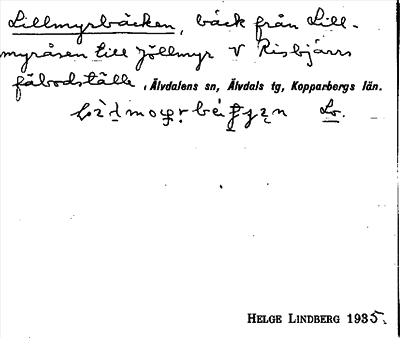 Lillmyrbäcken, bäck från Lill-
myråsen till Jöllmyr V Risbjärrs
fäbodställe, Älvdalens sn, Älvdals tg, Kopparbergs län.
Lo.
HELGE LINDBERG 1935.